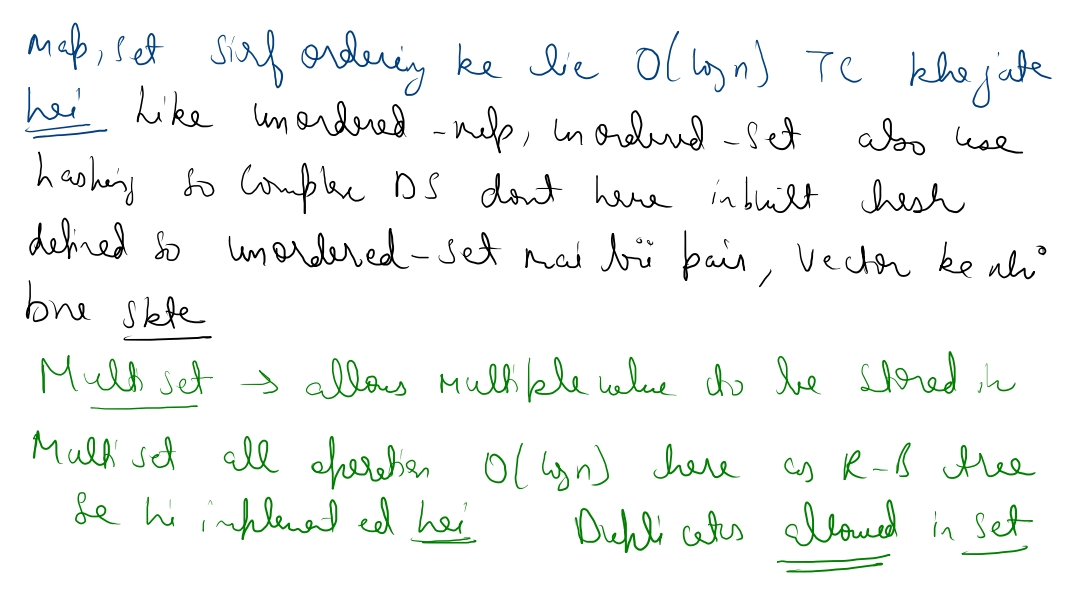 Map, set sirf ordering ke lie O(log n) TC khe jate
hei Like unordered-map, unordered-set also use
hashing so Complex DS dont have inbuilt hash
defined so unordered-set mai bii pair, Vector ke nhi
bne skte
Multi set → allows multiple value to be stored in
Multi set all operation O(log n) here as R-B tree
Se hi implement ed hei Duplicates allowed in set